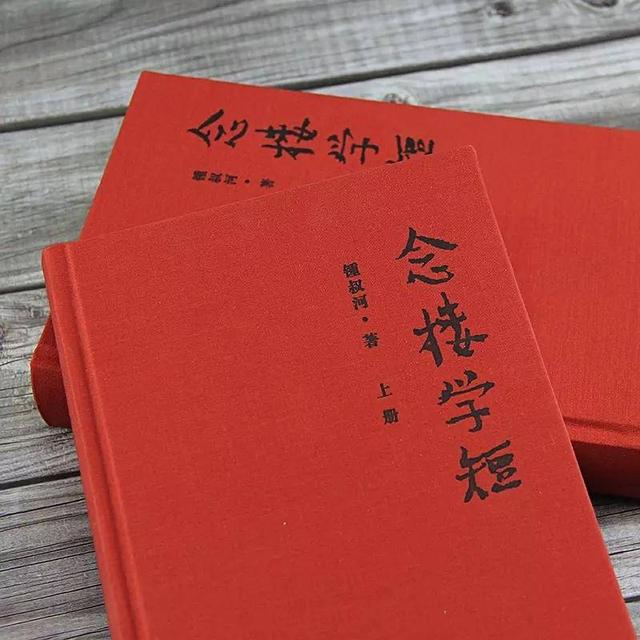 念楼学短
锺叔河·著
念楼学短
锺叔河·著
上册